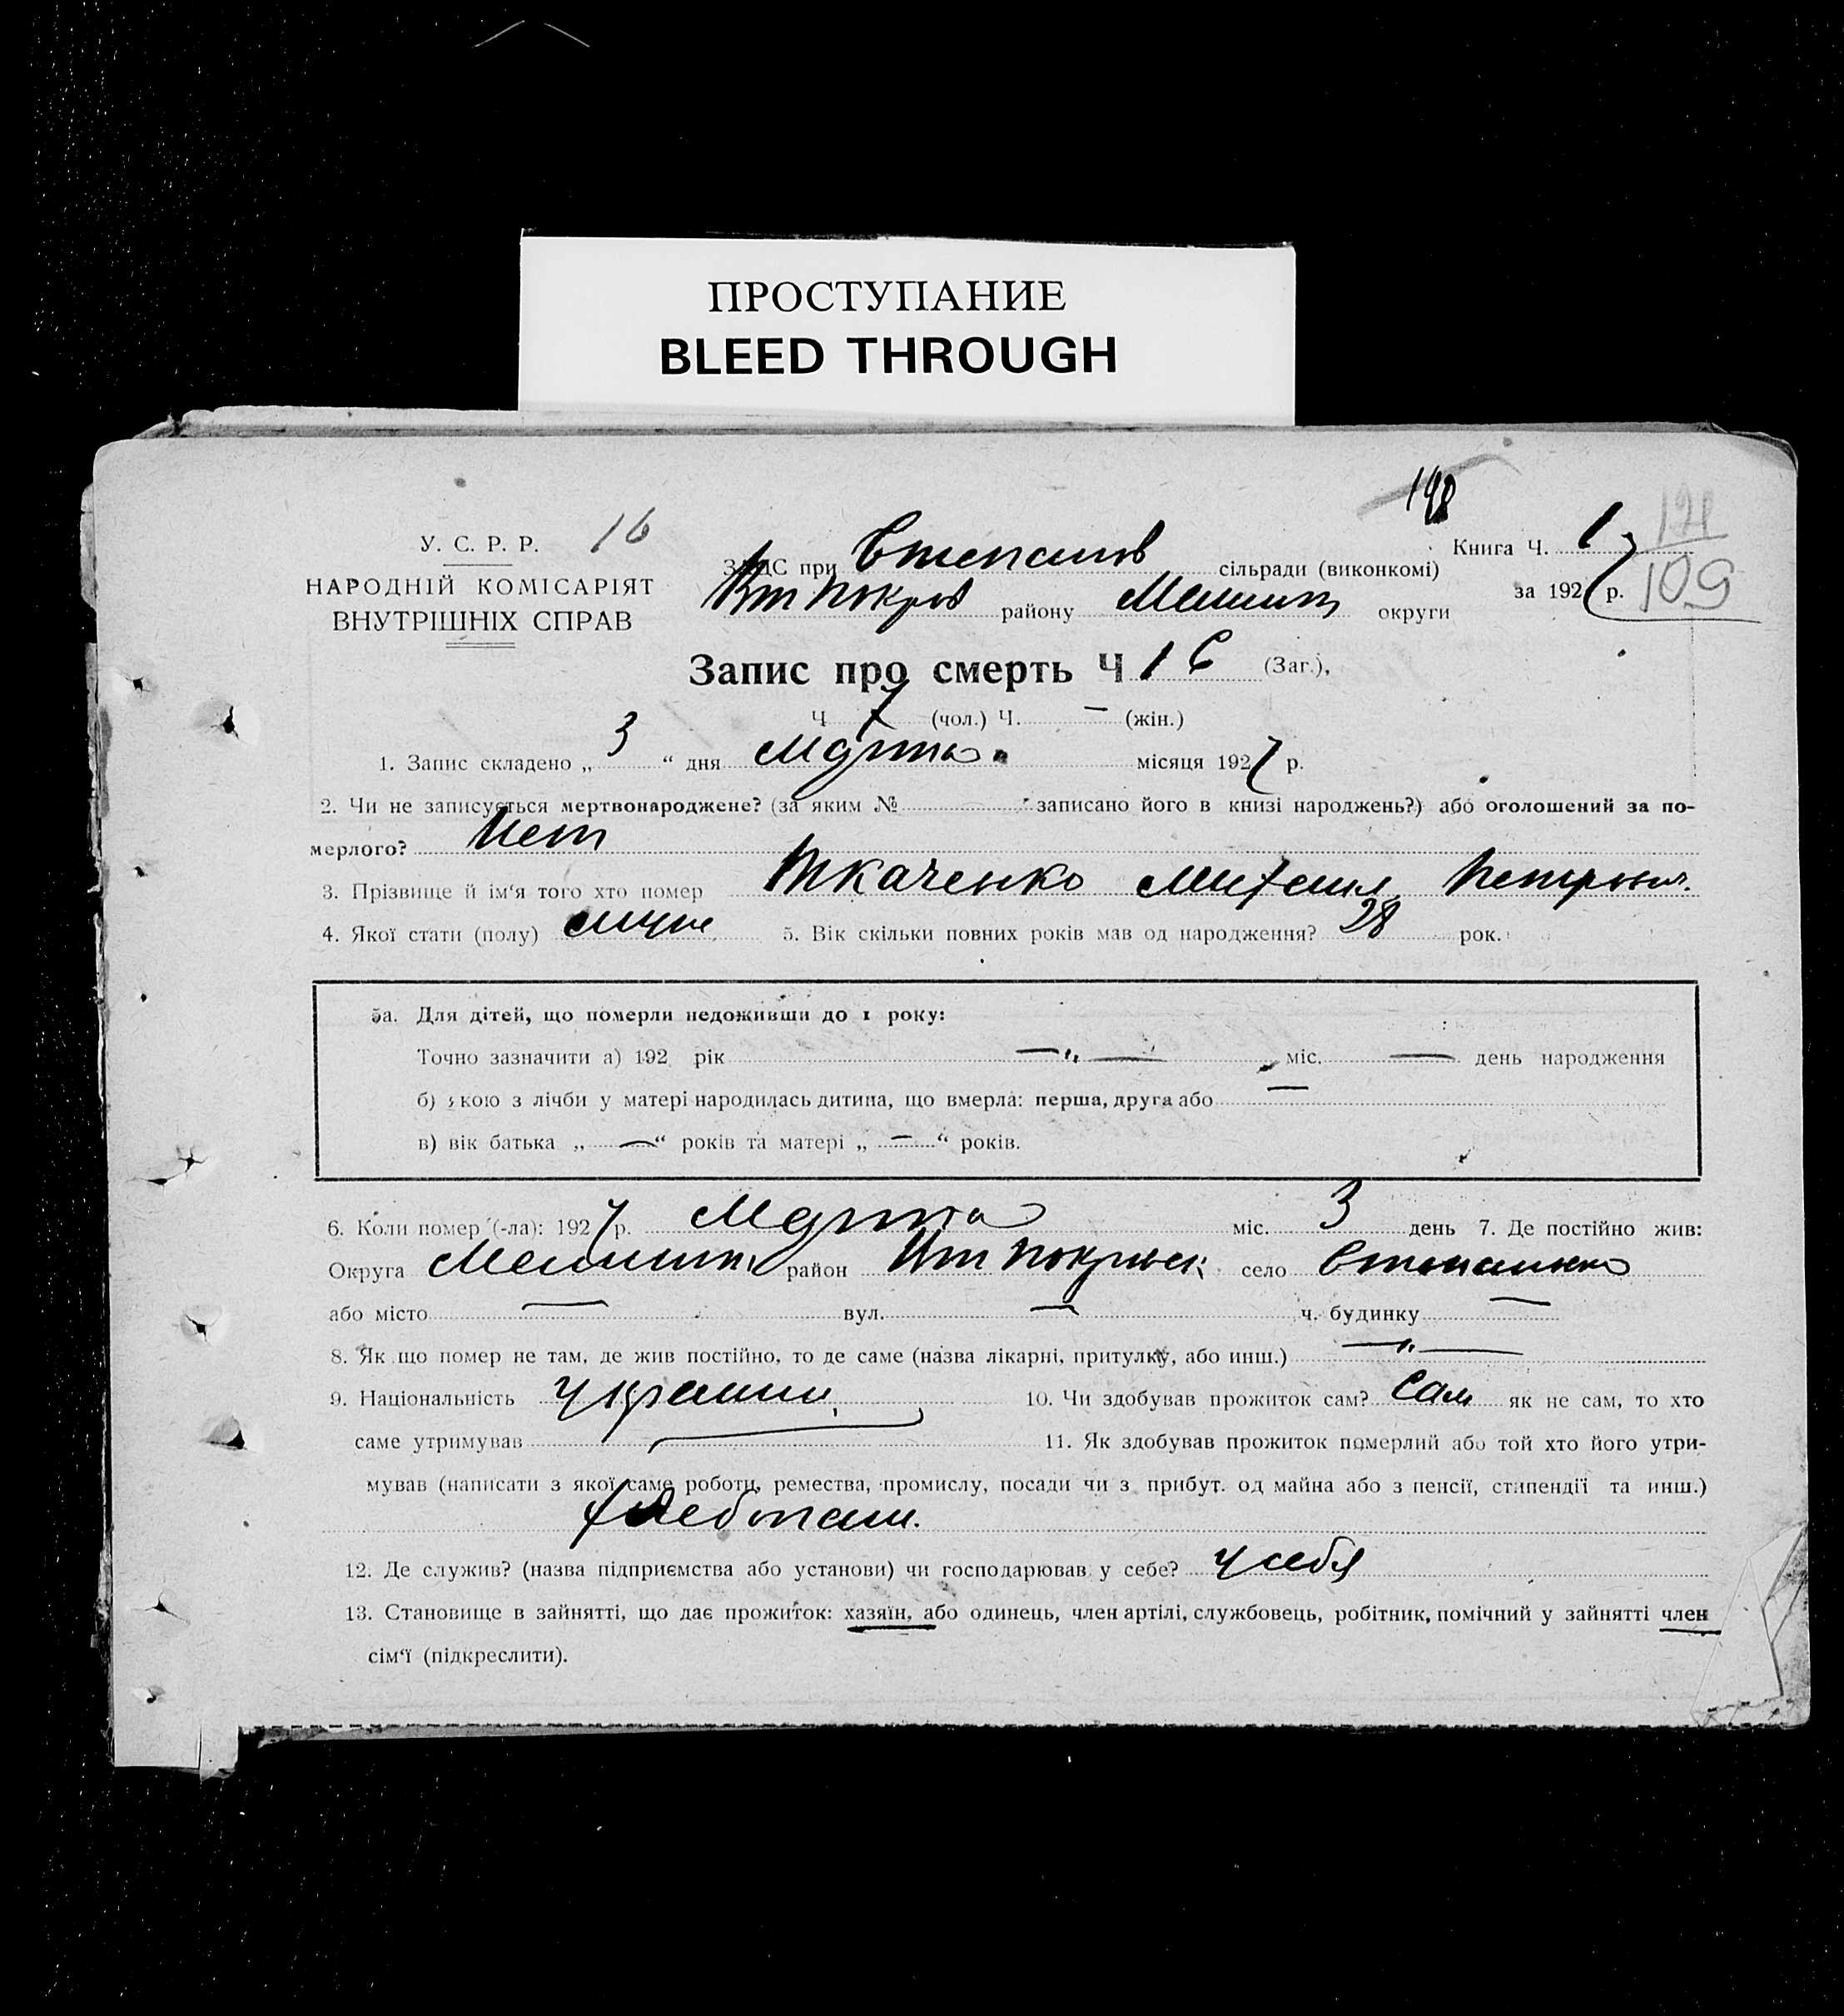 ПРОСТУПАНИЕ
BLEED THROUGH
198
У. С. Р. Р. 16
Книга Ч. 1
ЗАГС при Степанов сільради (виконкомі)
109
НАРОДНІЙ КОМІСАРІЯТ
за 1927 р.
района району Мелитоп округи
ВНУТРІШНІХ СПРАВ
Запис про смерть Ч 16 (Заг.),
Ч 7 (чол.) Ч. — (жін.)
1. Запис складено „ 3 “ дня Марта місяця 1927 р.
2. Чи не записується мертвонароджене? (за яким № записано його в книзі народжень?) або оголошений за по-
мерлого? Нет
3. Прізвище й ім‘я того хто помер Ткаченко Михаил Петрович.
4. Якої стати (полу) муж 5. Вік скільки повних років мав од народження? 28 рок.
5а. Для дітей, що померли недоживши до 1 року:
Точно зазначити а) 192 рік —„— міс. — день народження
б) якою з лічби у матері народилась дитина, що вмерла: перша, друга або —
в) вік батька „ — “ років та матері „ — “ років.
6. Коли помер (-ла): 1927 р. Марта міс. 3 день 7. Де постійно жив:
Округа Мелитоп район село Степановка
або місто — вул. — ч. будинку —
8. Як що помер не там, де жив постійно, то де саме (назва лікарні, притулку, або инш.) —„—
9. Національність украин. 10. Чи здобував прожиток сам? Сам як не сам, то хто
саме утримував 11. Як здобував прожиток померлий або той хто його утри-
мував (написати з якої саме роботи, ремества, промислу, посади чи з прибут. од майна або з пенсії, стипендії та инш.)
хлебопаш.
12. Де служив? (назва підприємства або установи) чи господарював у себе? у себя
13. Становище в зайнятті, що дає прожиток: хазяїн, або одинець, член артілі, службовець, робітник, помічний у зайнятті член
сім‘ї (підкреслити).